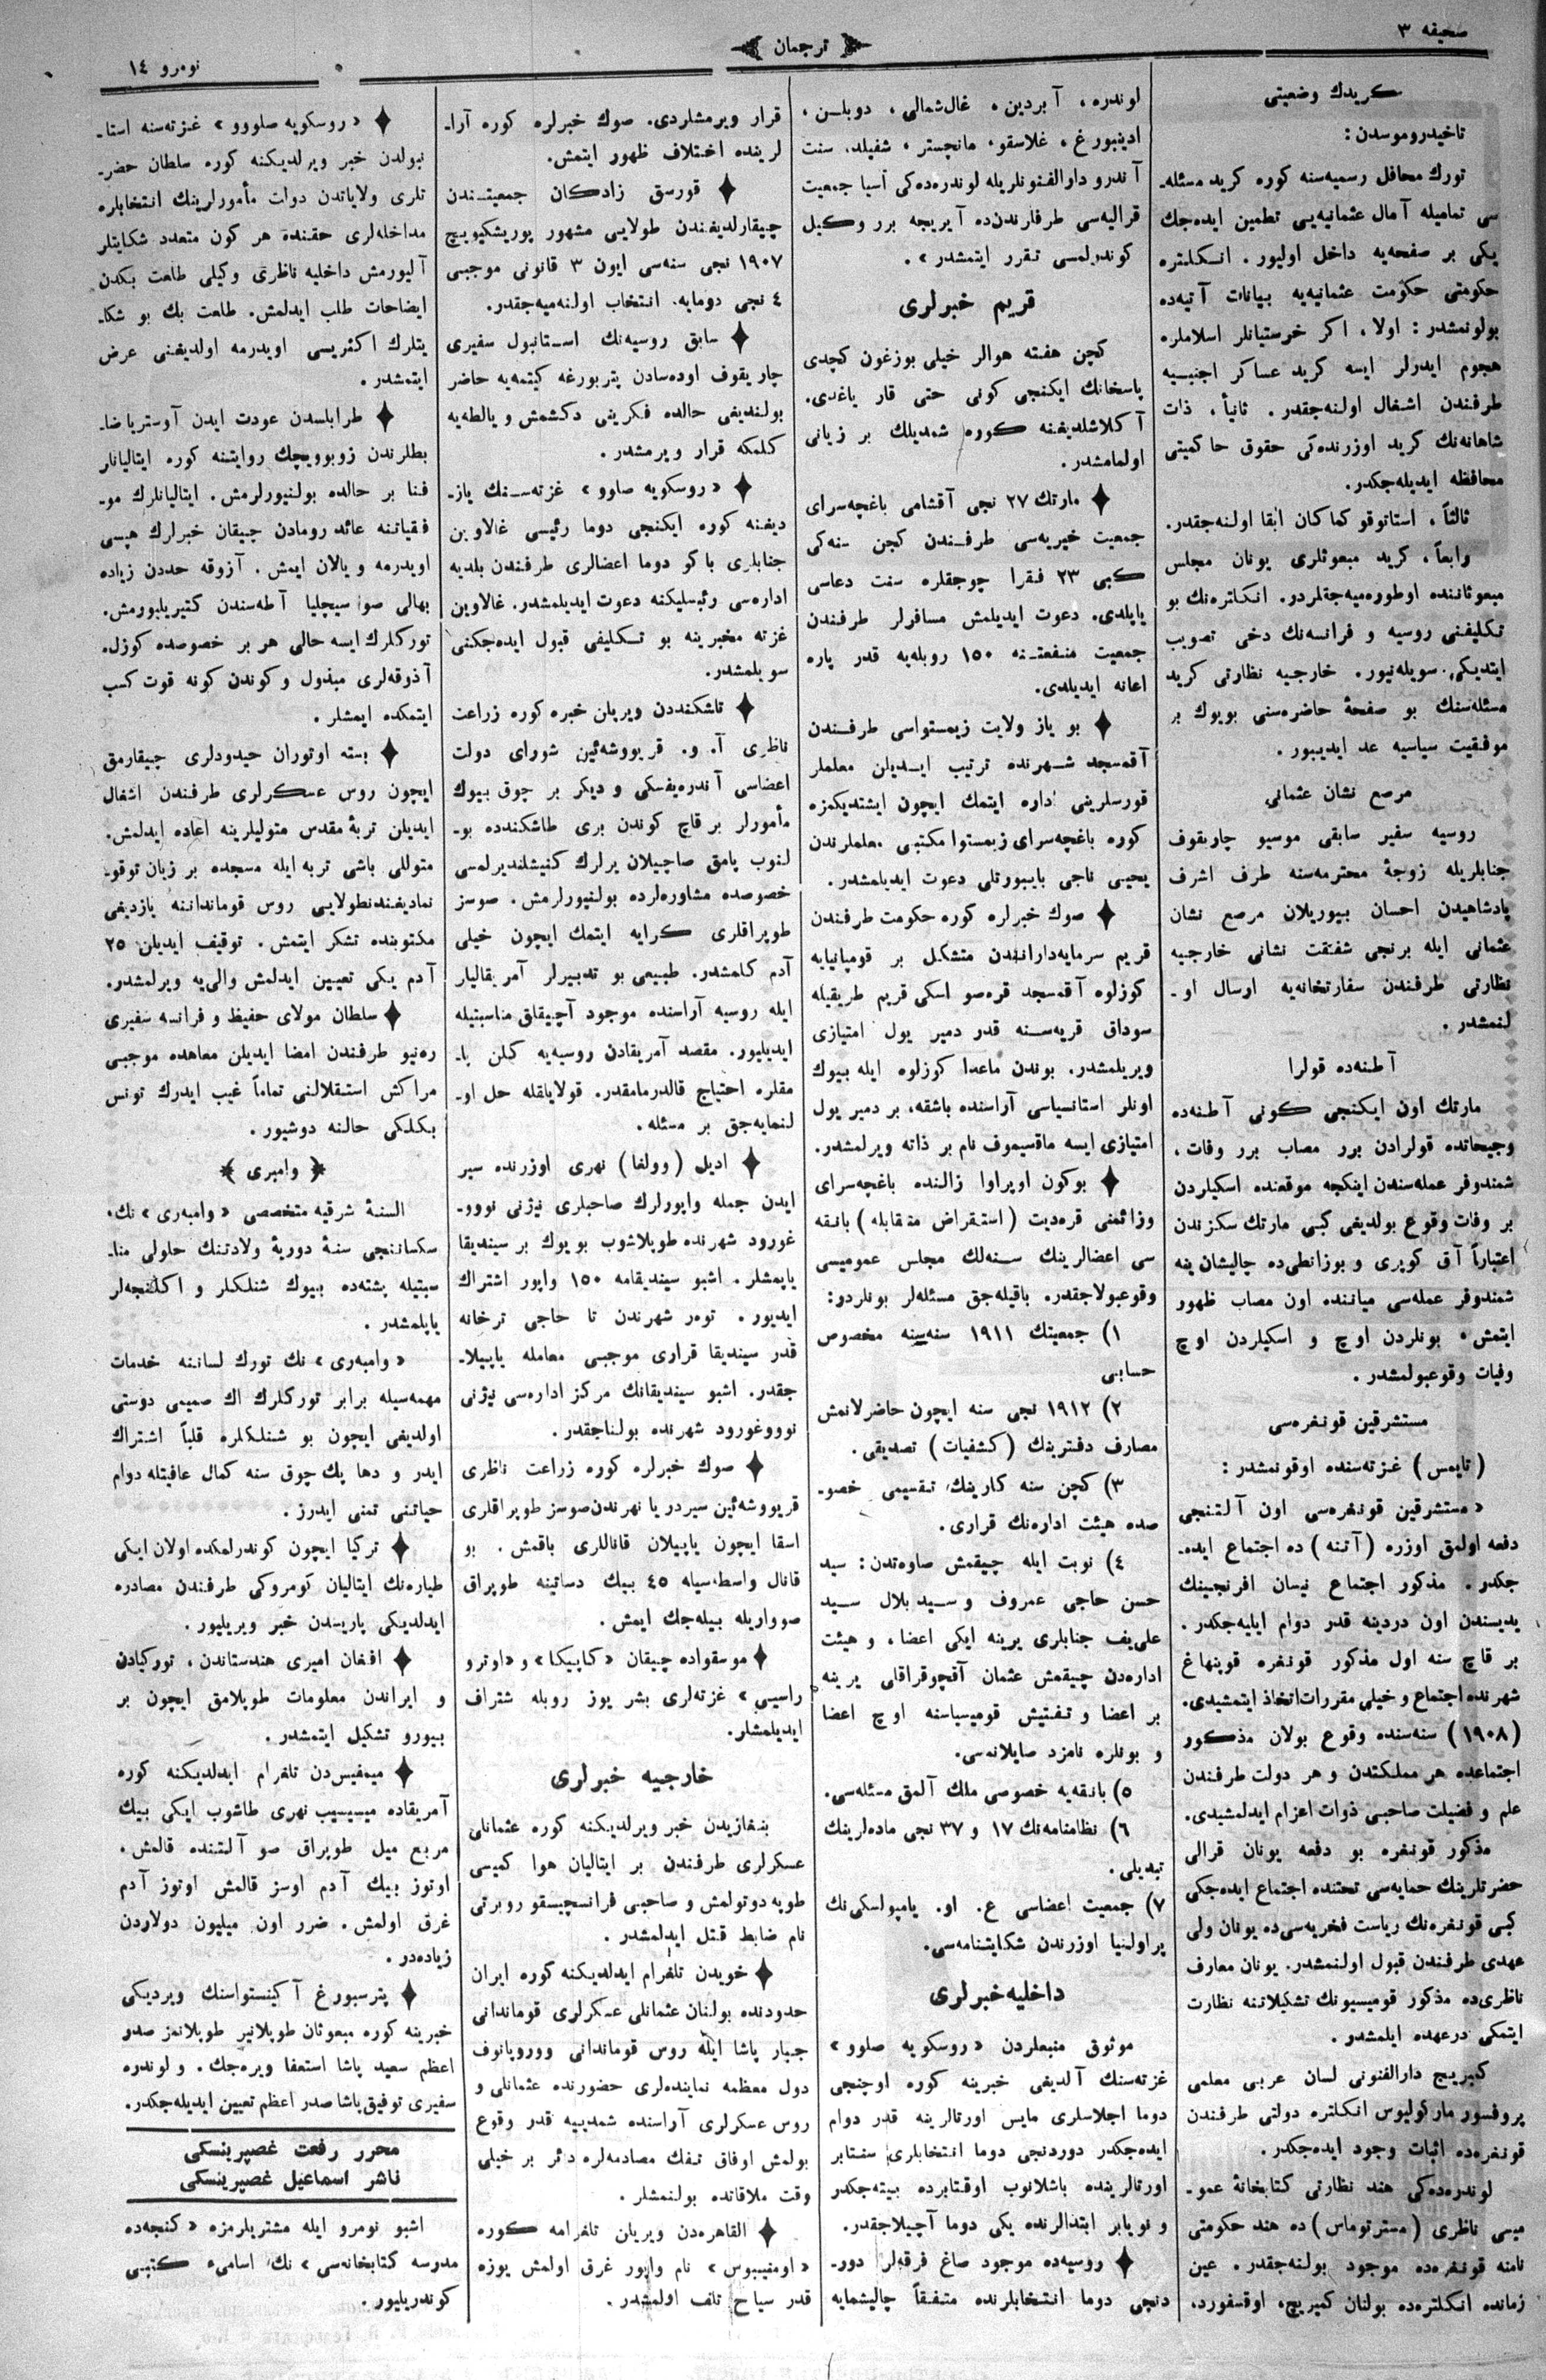 صحیفه ٣
ترجمان
نومرو ١٤
كریدك وضعیتی
تاخیدروموسدن :
تورك محافل رسمیه‌سنه كوره كرید مسئله‌ـ
سی تمامیله آمال عثمانیه‌یی تطمین ایده‌جك
یكی بر صفحه‌یه داخل اولیور . انكلتره
حكومتی حكومت عثمانیه‌یه بیانات آتیه‌ده
بولونمشدر : اولا ، اكر خرستیانلر اسلاملره
هجوم ایدرلر ایسه كرید عساكر اجنبیه
طرفندن اشغال اولنه‌جقدر . ثانیاً ، ذات
شاهانه‌نك كرید اوزرنده‌كی حقوق حاكمیتی
محافظه ایدیله‌جكدر.
ثالثاً ، استاتوقو كماكان ابقا اولنه‌جقدر.
وابعاً ، كرید مبعوثلری یونان مجلس
مبعوثاننده اوطوره‌میه‌جقلردر. انكلتره‌نك بو
تكلیفنی روسیه و فرانسه‌نك دخی تصویب
ایتدیكی سویله‌نیور. خارجیه نظارتی كرید
مسئله‌سنك بو صفحهٔ حاضره‌سنی بویوك بر
موفقیت سیاسیه عد ایدییور .
مرصع نشان عثمانی
روسیه سفیر سابقی موسیو چاریقوف
جنابلریله زوجهٔ محترمه‌سنه طرف اشرف
پادشاهیدن احسان بیوریلان مرصع نشان
عثمانی ایله برنجی شفقت نشانی خارجیه
نظارتی طرفندن سفارتخانه‌یه ارسال اوـ
لنمشدر .
آطنه‌ده قولرا
مارتك اون ایكنجی كونی آطنه‌ده
وجیحانده قولرادن برر مصاب برر وفات ،
شمندوفر عمله‌سندن اینكجه موقعنده اسكیلردن
بر وفات وقوع بولدیغی كبی مارتك سكزندن
اعتباراً آق كوپری و بوزانطی‌ده چالیشان ینه
شمندوفر عمله‌سی میاننده اون مصاب ظهور
ایتمش . بونلردن اوچ و اسكیلردن اوچ
وفیات وقوعبولمشدر .
مستشرقین قونغره‌سی
(تایمس) غزته‌سنده اوقونمشدر :
« مستشرقین قونغره‌سی اون آلتنجی
دفعه اولمق اوزره (آتنه) ده اجتماع ایده‌ـ
جكدر . مذكور اجتماع نیسان افرنجینك
یدیسندن اون دردینه قدر دوام ایلیه‌جكدر .
بر قاچ سنه اول مذكور قونغره قوپنهاغ
شهرنده اجتماع و خیلی مقررات اتخاذ ایتمشیدی.
(١٩٠٨) سنه‌سنده وقوع بولان مذكور
اجتماعده هر مملكتدن و هر دولت طرفندن
علم و فضیلت صاحبی ذوات اعزام ایدلمشیدی.
مذكور قونغره بو دفعه یونان قرالی
حضرتلرینك حمایه‌سی تحتنده اجتماع ایده‌جكی
كبی قونغره‌نك ریاست فخریه‌سی‌ده یونان ولی
عهدی طرفندن قبول اولنمشدر. یونان معارف
ناظری‌ده مذكور قومیسیونك تشكیلاتنه نظارت
ایتمكی درعهده ایلمشدر .
كمبریج دارالفنونی لسان عربی معلمی
پروفسور مارغولیوس انكلتره دولتی طرفندن
قونغره‌ده اثبات وجود ایده‌جكدر .
لوندره‌ده‌كی هند نظارتی كتابخانهٔ عموـ
میسی ناظری (مسترتوماس) ده هند حكومتی
نامنه قونغره‌ده موجود بولنه‌جقدر . عین
زمانده انكلتره‌ده بولنان كمبریج، اوقسفورد،
اوندره ، آبردین ، غال‌شمالی ، دوبلـن ،
ادینبورغ ، غلاسقو، مانچستر ، شفیلد، سنت
آندرو دارالفنونلریله لوندره‌ده‌كی آسیا جمعیت
قرالیه‌سی طرفلرندن‌ده آیریجه برر وكیل
كوندرلمسی تقرر ایتمشدر » .
قریم خبرلری
كچن هفته هوالر خیلی بوزغون كچدی
پاسخانك ایكنجی كونی حتی قار یاغدی.
آكلاشلدیغنه كوره شمدیلك بر زیانی
اولمامشدر .
مارتك ٢٧ نجی آقشامی باغچه‌سرای
جمعیت خیریه‌سی طرفـندن كچن سنه‌كی
كبی ٢٣ فقرا چوجقلره سنت دعاسی
یاپلدی. دعوت ایدیلمش مسافرلر طرفندن
جمعیت منفعتـنه ١٥٠ روبله‌یه قدر پاره
اعانه ایدیلدی.
بو یاز ولایت زیمستواسی طرفـندن
آقمسجد شهرنده ترتیب ایـدیلن معلملر
قورسلرینی اداره ایتمك ایچون ایشتدیكمزه
كوره باغچه‌سرای زیمستوا مكتبی معلملرندن
یحیی ناجی بایبورتلی دعوت ایدیلمشدر.
صوك خبرلره كوره حكومت طرفـندن
قریم سرمایه‌دارانندن متشكل بر قومپانیایه
كوزلوه آقمسجد قره‌صو اسكی قریم طریقیله
سوداق قریه‌سـنه قدر دمیر یول امتیازی
ویریلمشدر. بوندن ماعدا كوزلوه ایله بیوك
اونلر استانسیاسی آراسنده باشقه، بر دمیر یول
امتیازی ایسه ماقسیموف نام بر ذاته ویرلمشدر.
بوكون اوپراوا زالنده باغچه‌سرای
وزائمنی قره‌دیت (استقراض متقابله) بانقه
سی اعضالرینك سـنه‌لك مجلس عمومیسی
وقوعبولاجقدر. باقیله‌جق مسئله‌لر بونلردر:
١) جمعیتك ١٩١١ سنه‌سینه مخصوص
حسابی
٢) ١٩١٢ نجی سنه ایچون حاضرلانمش
مصارف دفترینك (كشفیات) تصدیقی.
٣) كچن سنه كارینك تقسیمی خصوـ
صده هیئت اداره‌نك قراری.
٤) نوبت ایله چیقمش صاوه‌تدن : سید
حسن حاجی عمروف و سـید بلال سـید
علی‌یف جنابلری یرینه ایكی اعضا، و هیئت
اداره‌دن چیقمش عثمان آقچوقراقلی یرینه
بر اعضا و تفتیش قومیسیاسنه اوچ اعضا
و بونلره نامزد صایلانه‌سی.
٥) بانقه‌یه خصوصی ملك آلمق مسئله‌سی.
٦) نظامنامه‌نك ١٧ و ٣٧ نجی ماده‌لرینك
تبدیلی.
٧) جمعیت اعضاسی ع. او. یامپولسكی‌نك
پراولنیا اوزرندن شكایتنامه‌سی.
داخلیه خبرلری
موثوق منبعلردن « روسكویه صلوو »
غزته‌سنك آلدیغی خبرینه كوره اوچنجی
دوما اجلاسلری مایس اورتالرینه قدر دوام
ایده‌جكدر دوردنجی دوما انتخابلری سنتابر
اورتالرینده باشلانوب اوقتابرده بیته‌جكدر
و نویابر ابتدالرنده یكی دوما آچیلاجقدر.
روسیه‌ده موجود صاغ فرقه‌لر دورـ
دنجی دوما انتخابلرنده متفقاً چالیشمایه
قرار ویرمشلردی. صوك خبرلره كوره آراـ
لرینده اختلاف ظهور ایتمش.
قورسق زادكان جمعیتـندن
چیقارلدیغندن طولایی مشهور پوریشكیویچ
١٩٠٧ نجی سنه‌سی ایون ٣ قانونی موجبی
٤ نجی دومایه. انتخاب اولنه‌میه‌جقدر.
سابق روسیه‌نك استانبول سفیری
چاریقوف اوده‌سادن پتربورغه كیتمه‌یه حاضر
بولندیغی حالده فكرینی دكشمش و یالطه‌یه
كلمكه قرار ویرمشدر .
« روسكویه صلوو » غزته‌سـنك یازـ
دیغنه كوره ایكنجی دوما رئیسی غالاوین
جنابلری باكو دوما اعضالری طرفندن بلدیه
اداره‌سی رئیسلیكنه دعوت ایدیلمشدر. غالاوین
غزته مخبرینه بو تكلیفی قبول ایده‌جكنی
سویلمشدر.
تاشكنددن ویریلن خبره كوره زراعت
ناظری آ. و. قریووشه‌ئین شورای دولت
اعضاسی آندره‌یفسكی و دیكر بر چوق بیوك
مأمورلر بر قاچ كوندن بری طاشكندده بوـ
لنوب پامق صاچیلان یرلرك كنیشلندیرلمسی
خصوصده مشاوره‌لرده بولنیورلرمش . صوسز
طوپراقلری كرایه ایتمك ایچون خیلی
آدم كلمشدر. طبیعی بو تدبیرلر آمریقالیلر
ایله روسیه آراسنده موجود آچیقلق مناسبتیله
ایدیلیور. مقصد آمریقادن روسیه‌یه كیلن پاـ
مقلره احتیاج قالدرمامقدر. قولایلقله حل اوـ
لنمایه‌جق بر مسئله .
ادیل (وولغا) نهری اوزرنده سیر
ایدن جمله واپورلرك صاحبلری نیژنی نووـ
غورود شهرنده طوپلاشوب بویوك بر سیندیقا
یاپمشلر . اشبو سیندیقامه ١٥٠ واپور اشتراك
ایدیور . توه‌ر شهرندن تا حاجی ترخانه
قدر سیندیقا قراری موجبی معامله یاپیلاـ
جقدر. اشبو سیندیقانك مركز اداره‌سی نیژنی
نوووغورود شهرنده بولناجقدر .
صوك خبرلره كوره زراعت ناظری
قریووشه‌ئین سیردریا نهرندن صوسز طوپراقلری
اسقا ایچون یاپیلان قاناللری باقمش . بو
قانال واسطه‌سیله ٤٥ بیك دساتینه طوپراق
صوواریله بیله‌جك ایمش .
موسقواده چیقان « كاپیكا » و « اوترو
راسیی » غزته‌لری بشر یوز روبله شتراف
ایدیلمشلر.
خارجیه خبرلری
بنغازیدن خبر ویرلدیكنه كوره عثمانلی
عسكرلری طرفندن بر ایتالیان هوا كمیسی
طوپه دوتولمش و صاحبی فرانسچیسقو روبرتی
نام ضابط قتل ایدلمشدر .
خویدن تلغرام ایدلدیكنه كوره ایران
حدودنده بولنان عثمانلی عسكرلری قوماندانی
جبار پاشا ایله روس قوماندانی ووروپانوف
دول معظمه نماینده‌لری حضورنده عثمانلی و
روس عسكرلری آراسنده شمدییه قدر وقوع
بولمش اوفاق تفك مصادمه‌لره دئر بر خیلی
وقت ملاقاتده بولنمشلر .
القاهره‌دن ویریلن تلغرامه كوره
« اومنیبوس » نام واپور غرق اولمش یوزه
قدر سیاح تلف اولمشدر.
« روسكویه صلووو » غزته‌سنه استاـ
نبولدن خبر ویرلدیكنه كوره سلطان حضرـ
تلری ولایاتدن دولت مأمورلرینك انتخابلره
مداخله‌لری حقنده هر كون متعدد شكایتلر
آلیورمش داخلیه ناظری وكیلی طلعت بكدن
ایضاحات طلب ایدلمش. طلعت بك بو شكاـ
یتلرك اكثریسی اویدرمه اولدیغنی عرض
ایتمشدر .
طرابلسدن عودت ایدن آوستریا ضاـ
بطلرندن زوبوویچك روایتنه كوره ایتالیانلر
فنا بر حالده بولنیورلرمش . ایتالیانلرك موـ
فقیاتنه عائد رومادن چیقان خبرلرك هپسی
اویدرمه و یالان ایمش . آزوقه حددن زیاده
بهالی صو سیچلیا آطه‌سندن كتیریلیورمش.
توركلرك ایسه حالی هر بر خصوصده كوزل،
آذوقه‌لری مبذول و كوندن كونه قوت كسب
ایتمكده ایمشلر .
بسته اوتوران حیدودلری چیقارمق
ایچون روس عسكرلری طرفندن اشغال
ایدیلن تربهٔ مقدس متولیلرینه اعاده ایدلمش.
متوللی باشی تربه ایله مسجده بر زیان توقوـ
نمادیغندنطولایی روس قومانداننه یازدیغی
مكتوبنده تشكر ایتمش . توقیف ایدیلن ٢٥
آدم یكی تعیین ایدلمش والی‌یه ویرلمشدر.
سلطان مولای حفیظ و فرانسه سفیری
ره‌نیو طرفندن امضا ایدیلن معاهده موجبی
مراكش استقلالنی تماماً غیب ایدرك تونس
بكلكی حالنه دوشیور .
﴿ وامبری ﴾
السنهٔ شرقیه متخصصی « وامبه‌ری » نك،
سكساننجی سنهٔ دوریهٔ ولادتنك حلولی مناـ
سبتیله پشته‌ده بیوك شنلكلر و اكلنجه‌لر
یاپلمشدر .
« وامبه‌ری » نك تورك لساننه خدمات
مهمه‌سیله برابر توركلرك اك صمیمی دوستی
اولدیغی ایچون بو شنلكلره قلباً اشتراك
ایدر و دها پك چوق سنه كمال عافیتله دوام
حیاتنی تمنی ایدرز .
تركیا ایچون كوندرلمكده اولان ایكی
طیاره‌نك ایتالیان كومروكی طرفندن مصادره
ایدلدیكی پاریسدن خبر ویریلیور .
افغان امیری هندستاندن ، توركیادن
و ایراندن معلومات طوپلامق ایچون بر
بیورو تشكیل ایتمشدر .
میمفیس‌دن تلغرام ایدلدیكنه كوره
آمریقاده میسیسیپ نهری طاشوب ایكی بیك
مربع میل طوپراق صو آلتنده قالمش .
اوتوز بیك آدم اوسز قالمش اوتوز آدم
غرق اولمش . ضرر اون میلیون دولاردن
زیاده‌در .
پترسبورغ آكینستواسنك ویردیكی
خبرینه كوره مبعوثان طوپلانیر طوپلانمز صدر
اعظم سعید پاشا استعفا ویره‌جك . و لوندره
سفیری توفیق پاشا صدر اعظم تعیین ایدیله‌جكدر.
محرر رفعت غصپرینسكی
ناشر اسماعیل غصپرینسكی
اشبو نومرو ایله مشتریلرمزه « كنجه‌ده
مدرسه كتابخانه‌سی » نك اسامیء كتبی
كوندریلیور .